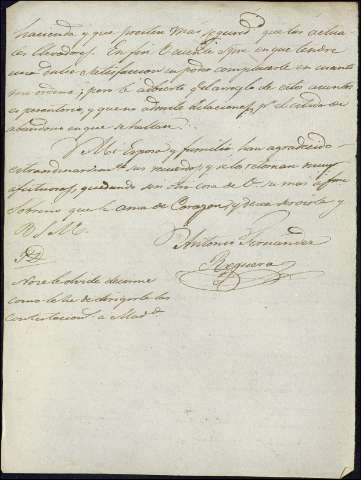 hacienda y que presten mas seguridd que los actua
les llevadores. En fin V. cuente spre en que tendre
una entera satisfaccion en poder complacerle en cuanto
me ordene; pero le advierto qe el arreglo de estos asuntos
es perentorio, y que no admite dilaciones pr el estado de
abandono en que se hallan.
Mi Esposa y familia han agradecido
extraordinariamte sus recuerdos, y se los retornan muy
afectuosos, quedando sin otra cosa de V. su mas affmo
Sobrino que le ama de Corazon, y desea servirle y
B. S. M.
Antonio Fernandez
Reguera
P.D.
No se le olvide decirme
como le he de dirigir las
contestaciones a Madd